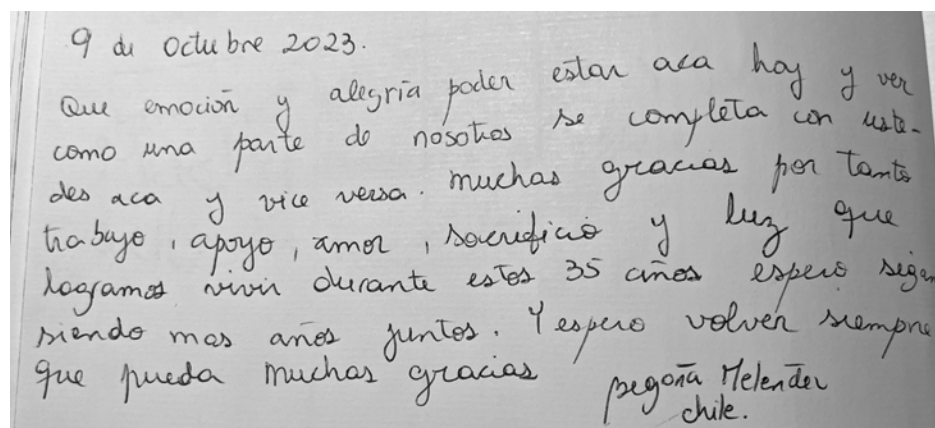 9 de octubre 2023.
Que emoción y alegría poder estar aca hoy y ver
como una parte de nosotros se completa con uste-
des aca y vice versa. muchas gracias por tanto
trabajo, apoyo, amor, sacrificio y luz que
logramos vivir durante estos 35 años espero sigan
siendo mas años juntos. Y espero volver siempre
que pueda muchas gracias
Begoña Melendez
chile.